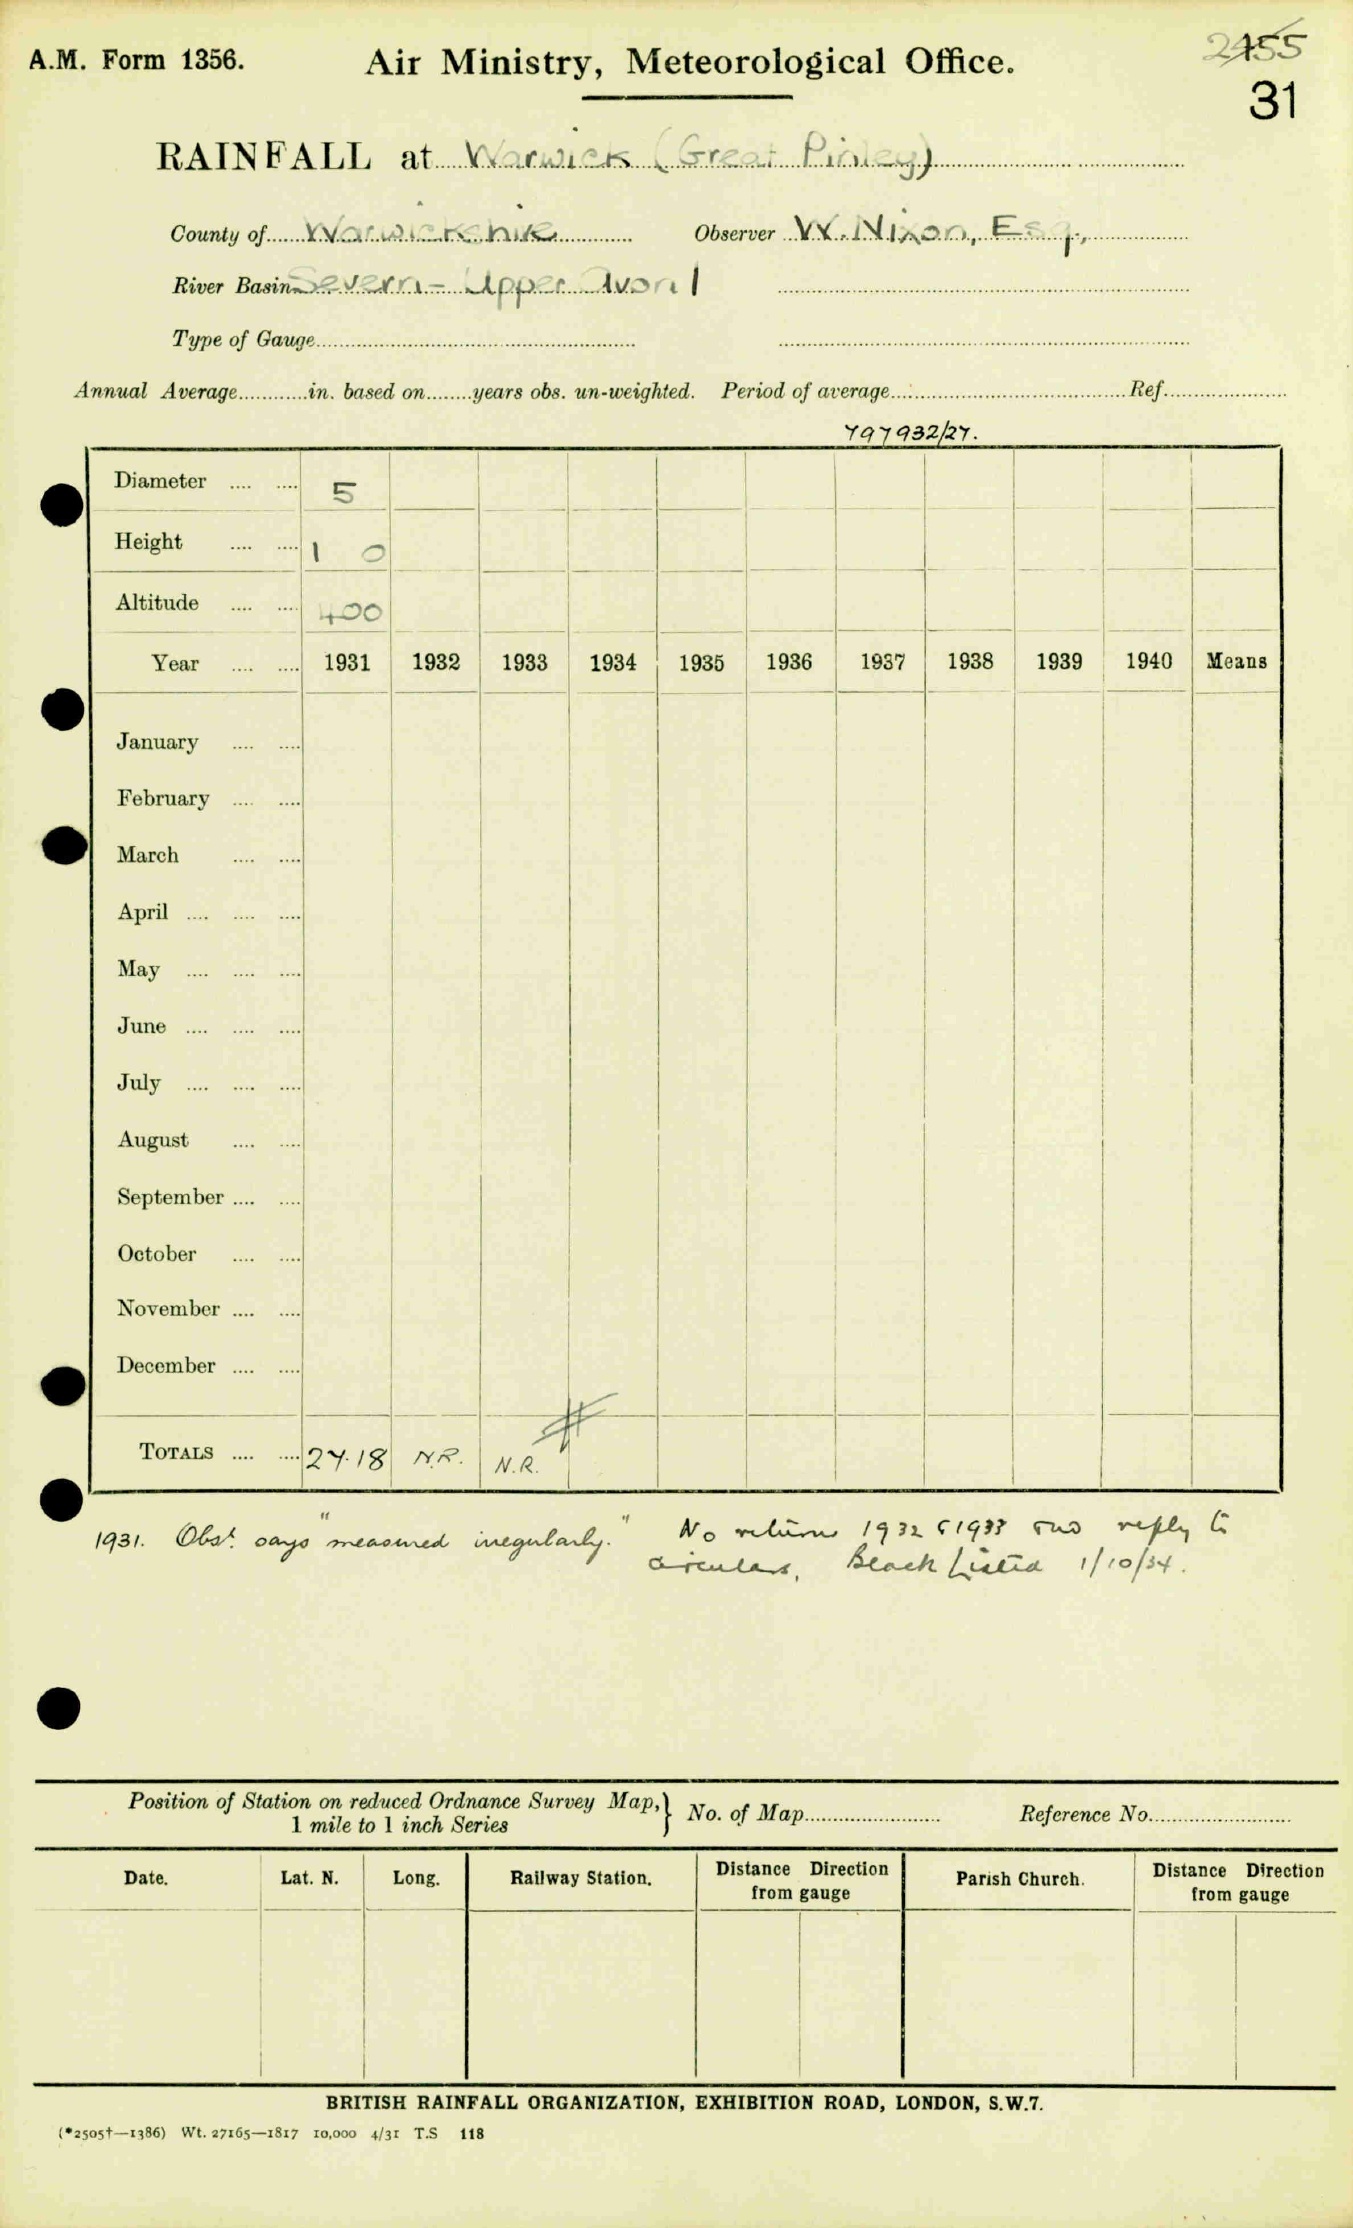 A.M. Form 1356.
Air Ministry, Meteorological Office.
2455
31
RAINFALL at Warwick (Great Pinley)
County of Warwickshire Observer W. Nixon, Esq.,
River Basin Severn - Upper Avon 1
Type of Gauge
Annual Average in. based on years obs. un-weighted. Period of average Ref.
797932/27.
Diameter 5
Height 1 0
Altitude 400
Year 1931 1932 1933 1934 1935 1936 1937 1938 1939 1940 Means
January
February
March
April
May
June
July
August
September
October
November
December
TOTALS 27.18 N.R. N.R.
1931. Obsr. says "measured irregularly." No returns 1932 & 1933 no reply to
circulars, Black Listed 1/10/34.
Position of Station on reduced Ordnance Survey Map, } No. of Map Reference No.
1 mile to 1 inch Series
Date. Lat. N. Long. Railway Station. Distance Direction Parish Church. Distance Direction
from gauge from gauge
BRITISH RAINFALL ORGANIZATION, EXHIBITION ROAD, LONDON, S.W.7.
(*2505†—1386) Wt. 27165—1817 10,000 4/31 T.S 118